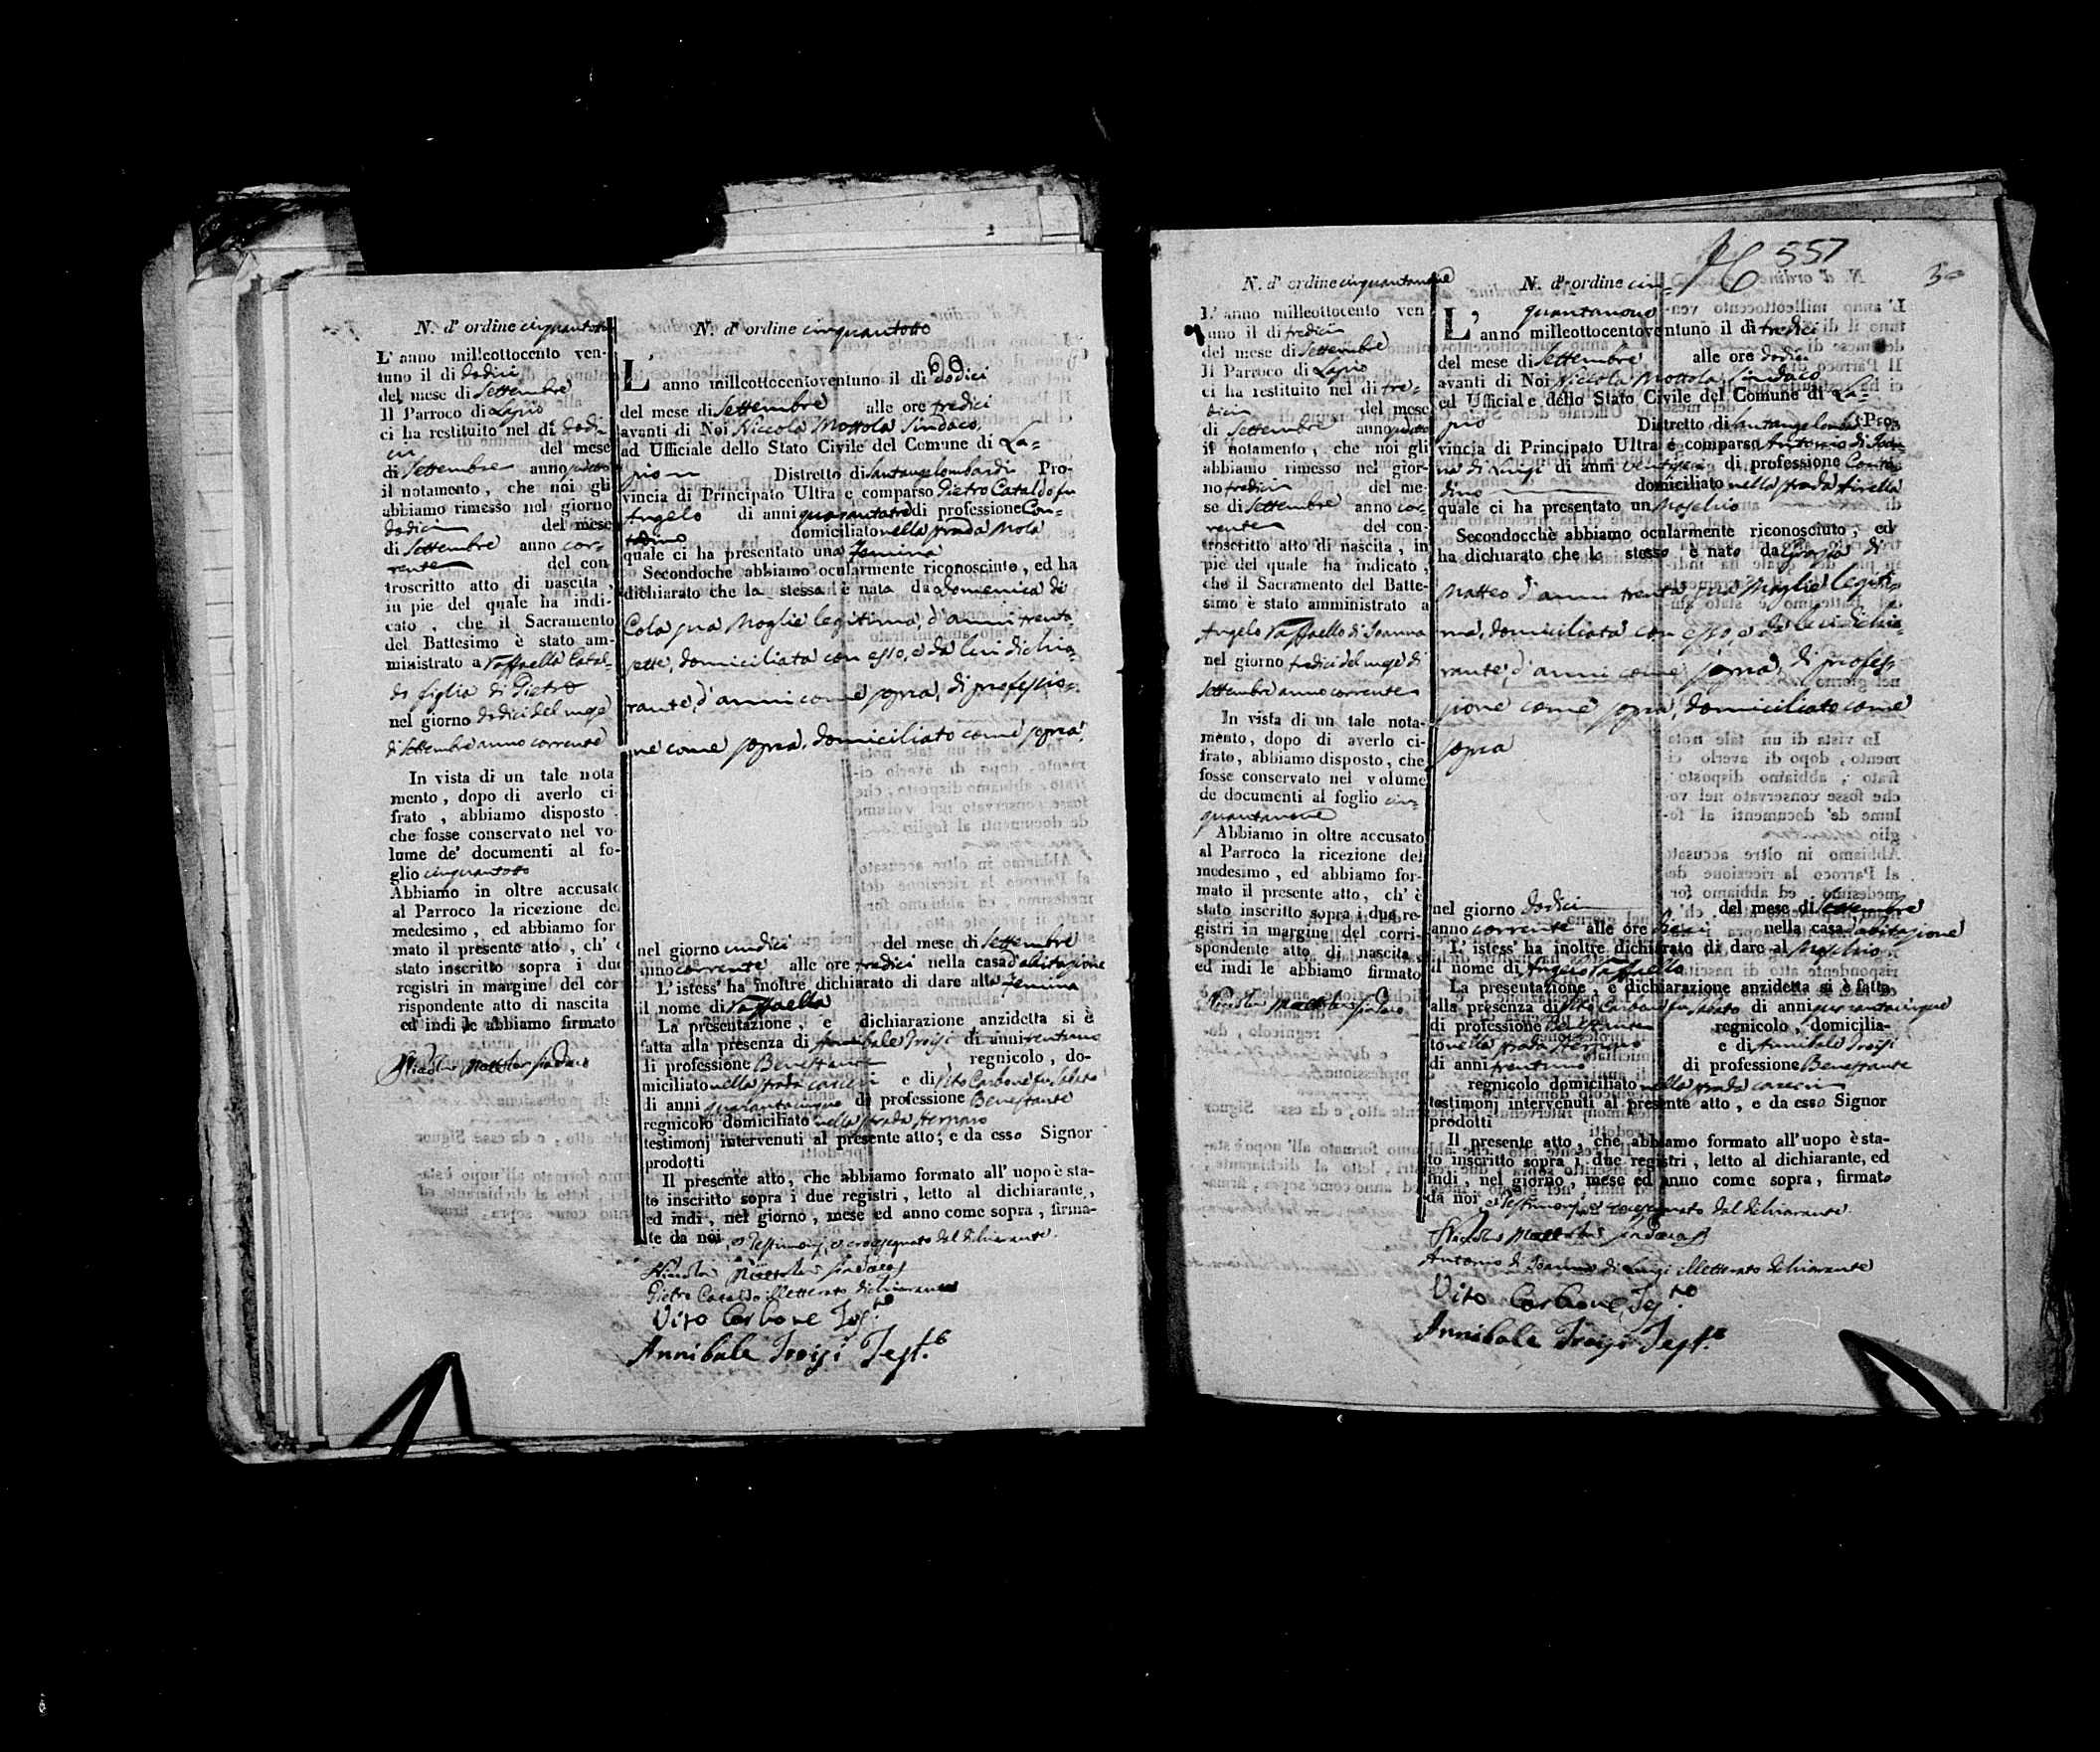 N. d' ordine cinquantotto
L' anno milleottocento ven-
tuno il di dodici
del mese di Settembre
Il Parroco di Lapio
ci ha restituito nel di dodi-
ci del mese
di Settembre anno
il notamento, che noi gli
abbiamo rimesso nel giorno
dodici del mese
di Settembre anno cor-
rente del con
troscritto atto di nascita,
in pie del quale ha indi-
cato, che il Sacramento
del Battesimo è stato am-
ministrato a Raffaella Catal-
do figlia di Pietro
nel giorno dodici del mese
di Settembre anno corrente
In vista di un tale nota
mento, dopo di averlo ci
frato, abbiamo disposto
che fosse conservato nel vo-
lume de' documenti al fo-
glio cinquantotto
Abbiamo in oltre accusato
al Parroco la ricezione del
medesimo, ed abbiamo for
mato il presente atto, ch' è
stato inscritto sopra i due
registri in margine del cor
rispondente atto di nascita
ed indi le abbiamo firmato
Nicola Mottola Sindaco
N. d' ordine cinquantotto
L' anno milleottocentoventuno il di dodici
del mese di Settembre alle ore tredici
avanti di Noi Niccola Mottola Sindaco
ad Ufficiale dello Stato Civile del Comune di La-
pio Distretto di Santangelombardi Pro-
vincia di Principato Ultra e comparso Pietro Cataldo fu
Angelo di anni quarantatre di professione Con-
tadino domiciliato nella strada Mola
quale ci ha presentato una Femina
Secondoche abbiamo ocularmente riconosciuto, ed ha
dichiarato che la stessa è nata da Domenica di
Cola sua Moglie legitima, d'anni trenta-
sette, domiciliata con esso, e da lui dichia-
rante, d'anni come sopra, di professio-
ne come sopra, domiciliato come sopra
nel giorno undici del mese di Settembre
anno corrente alle ore tredici nella casa d'abitazione
L' istess' ha inoltre dichiarato di dare alla Femina
il nome di Raffaella
La presentazione, e dichiarazione anzidetta si è
fatta alla presenza di Annibale Troisi di anni trentuno
di professione Benestante regnicolo, do-
miciliato nella strada e di Vito Carbone fu Sabato
di anni quarantacinque di professione Benestante
regnicolo domiciliato nella strada
testimonj intervenuti al presente atto; e da esso Signor
prodotti
Il presente atto, che abbiamo formato all' uopo è sta-
to inscritto sopra i due registri, letto al dichiarante,
ed indi, nel giorno, mese ed anno come sopra, firma-
te da noi, e Testimonj, e crocesegnato dal dichiarante.
Nicola Mottola Sindaco
Pietro Cataldo illetterato dichiarante
Vito Carbone Tes.to
Annibale Troisi Test.e
557
N. d' ordine cinquantanove
L' anno milleottocento ven
tuno il di tredici
del mese di Settembre
Il Parroco di Lapio
ci ha restituito nel di tre-
dici del mese
di Settembre anno
il notamento, che noi gli
abbiamo rimesso nel gior-
no tredici del me-
se di Settembre anno cor-
rente del con-
troscritto atto di nascita, in
pie del quale ha indicato,
che il Sacramento del Batte-
simo è stato amministrato a
Angelo Raffaello di Joanna
nel giorno tredici del mese di
Settembre anno corrente
In vista di un tale nota-
mento, dopo di averlo ci-
frato, abbiamo disposto, che
fosse conservato nel volume
de documenti al foglio cin-
quantanove
Abbiamo in oltre accusato
al Parroco la ricezione del
medesimo, ed abbiamo for-
mato il presente atto, ch' è
stato inscritto sopra i due re-
gistri in margine del corri-
spondente atto di nascita
ed indi le abbiamo firmato
Nicola Mottola Sindaco
N. d' ordine cin-
quantanove
L' anno milleottocentoventuno il di tredici
del mese di Settembre alle ore dodici
avanti di Noi Niccola Mottola Sindaco
ed Ufficial e dello Stato Civile del Comune di La-
pio Distretto di Santangelomb. Pro-
vincia di Principato Ultra è comparso Antonio di Joan-
na di Luigi di anni di professione Conta-
dino domiciliato nella strada
quale ci ha presentato un Maschio
Secondocchè abbiamo ocularmente riconosciuto, ed
ha dichiarato che lo stesso è nato da di
Matteo d'anni trenta sua Moglie legiti-
ma, domiciliata con esso, e da lui dichia-
rante, d'anni come sopra, di profes-
sione come sopra, domiciliato come
sopra
nel giorno dodici del mese di Settembre
anno corrente alle ore dieci nella casa d'abitazione
L' istess' ha inoltre dichiarato di dare al Maschio
il nome di Angelo Raffaello
La presentazione, e dichiarazione anzidetta si è fatta
alla presenza di Vito Carbone fu Sabato di anni quarantacinque
di professione Benestante regnicolo, domicilia-
to nella strada e di Annibale Troisi
di anni trentuno di professione Benestante
regnicolo domiciliato nella strada
testimonj intervenuti al presente atto, e da esso Signor
prodotti
Il presente atto, che abbiamo formato all' uopo è sta-
to inscritto sopra i due registri, letto al dichiarante, ed
indi, nel giorno, mese ed anno come sopra, firmato
da noi e Testimonj, e crocesegnato dal dichiarante
Nicola Mottola Sindaco
Antonio di Joanna di Luigi illetterato dichiarante
Vito Carbone Tes.to
Annibale Troisi Test.e